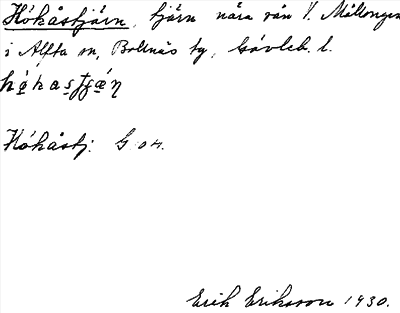 Kókåstjärn, tjärn nära rån V. Mållongen
i Alfta sn, Bollnäs tg, Gävleb. l.
Kókåstj. G 04.
Erik Eriksson 1930.